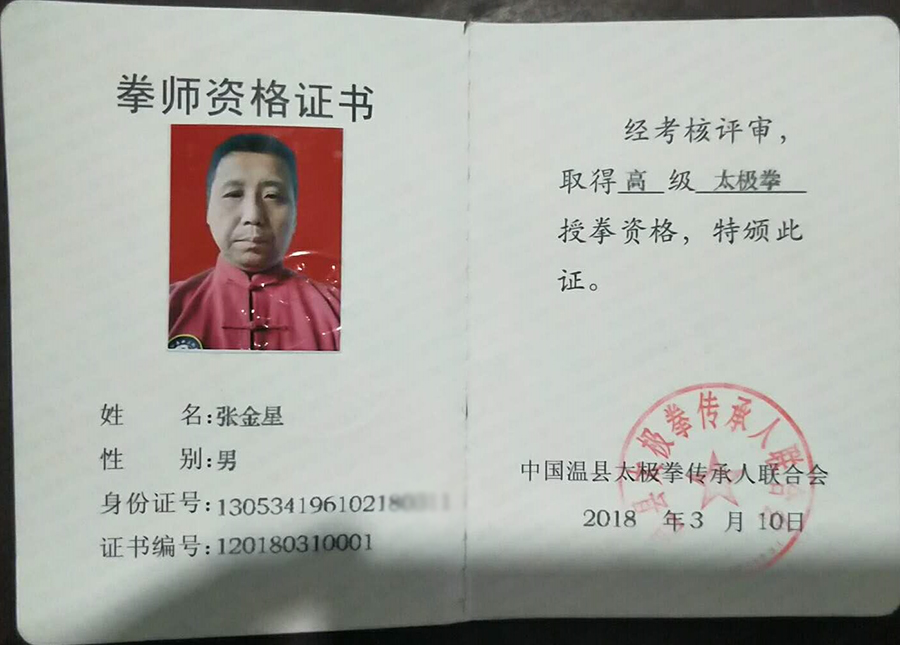 拳师资格证书
姓 名:张金星
性 别:男
身份证号:130534196102180
证书编号:120180310001
经考核评审，
取得 高 级 太极拳
授拳资格，特颁此
证。
太极拳传承人联合会
中国温县太极拳传承人联合会
2018 年3 月 10日